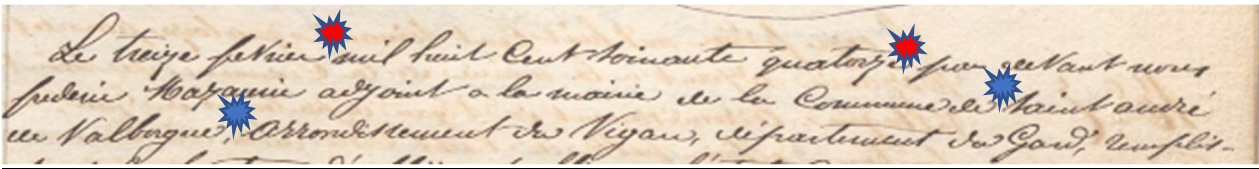 Le treize fevrier mil huit Cent soixante quatorze par devant nous
frederic Mazaurin adjoint a la mairie de la Commune de saint andré
de Valborgne, Arrondissement du Vigan, département du Gard, remplis-